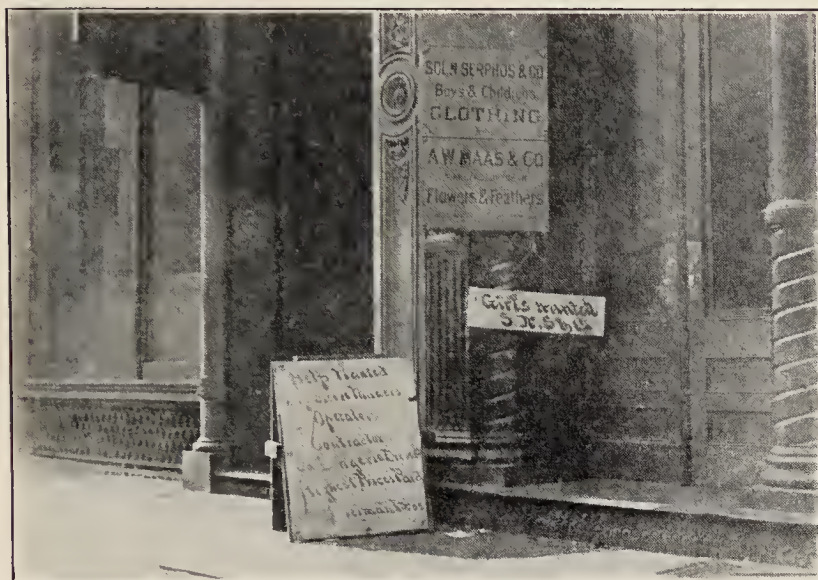 SOL.N SERPHOS & CO
Boys & Children's
CLOTHING
A.W. MAAS & CO
Flowers & Feathers
Girls wanted
Help Wanted
Operators
Contractor
Lingerie
Highest Prices Paid